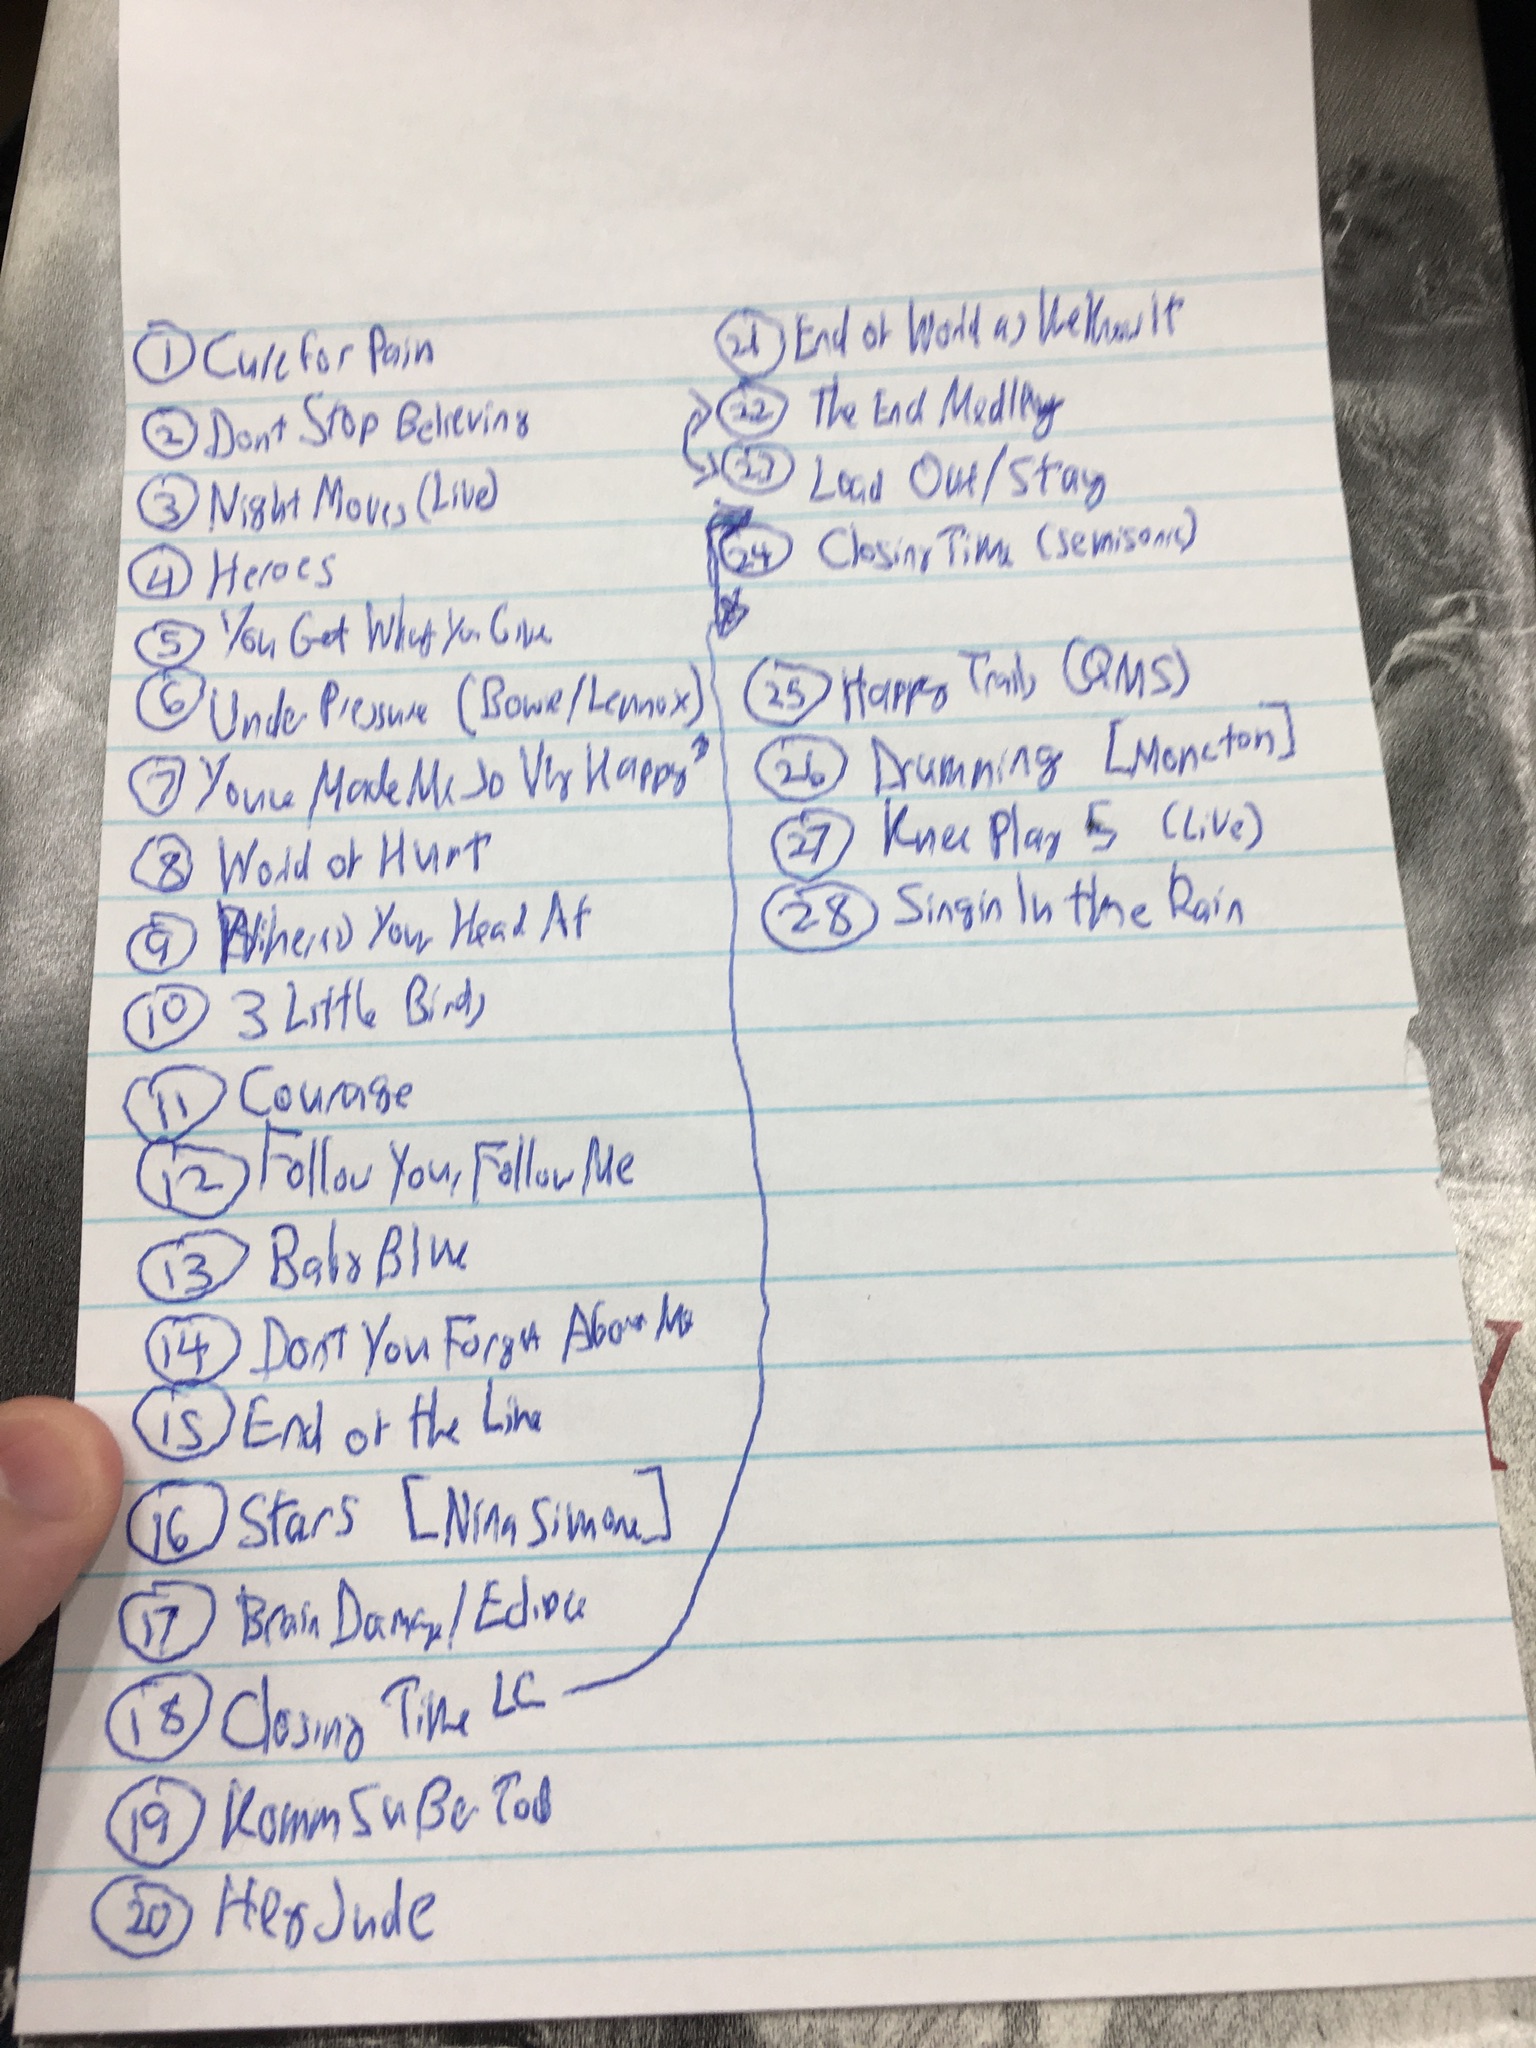 1 Cure for Pain
2 Dont Stop Believing
3 Night Moves (Live)
4 Heroes
5 You Get What You Give
6 Under Pressure (Bowie/Lennox)
7 Youve Made Me So Very Happy
8 World of Hurt
9 Wheres Your Head At
10 3 Little Birds
11 Courage
12 Follow You, Follow Me
13 Baby Blue
14 Dont You Forget About Me
15 End of the Line
16 Stars [Nina Simone]
17 Brain Damage/Eclipse
18 Closing Time LC
19 Komm Su Ber Tod
20 Hey Jude
21 End of World as We Know It
22 The End Medley
23 Load Out/Stay
24 Closing Time (Semisonic)
25 Happy Trails (QMS)
26 Drumming [Moncton]
27 Knee Play 5 (Live)
28 Singin In the Rain
Y